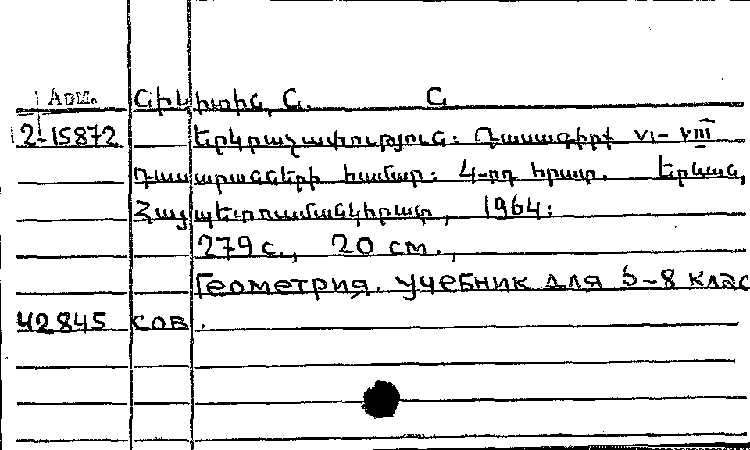 Арм. Նիկիտին, Ն. Ն
2-15872 Երկրաչափություն: Դասագիրք VI-VIII
Դասարանների համար: 4-րդ հրատ. Երևան,
Հայպետուսմանկհրատ, 1964:
279 с., 20 см.,
Геометрия. Учебник для 6-8 клас
42845 сов.